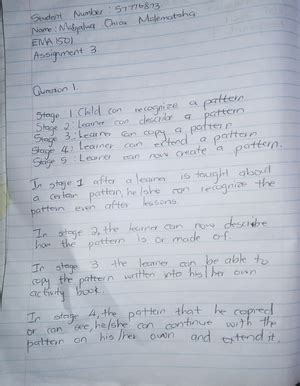 Student Number : 57776873
Name : Chioa Malematsha
EMA1501
Assignment 3
Question 1.
Stage 1 : Child can recognize a pattern
Stage 2 : Learner can describe a pattern
Stage 3 : Learner can copy a pattern
Stage 4 : Learner can extend a pattern
Stage 5 : Learner can now create a pattern.
In stage 1 after a learner is taught about
a certain pattern, he/she can recognize the
pattern even after lessons.
In stage 2, the learner can now describe
how the pattern is or made of.
In stage 3 the learner can be able to
copy the pattern written into his/her own
activity book.
In stage 4, the pattern that he copied
or can see, he/she can continue with the
pattern on his/her own and extend it.